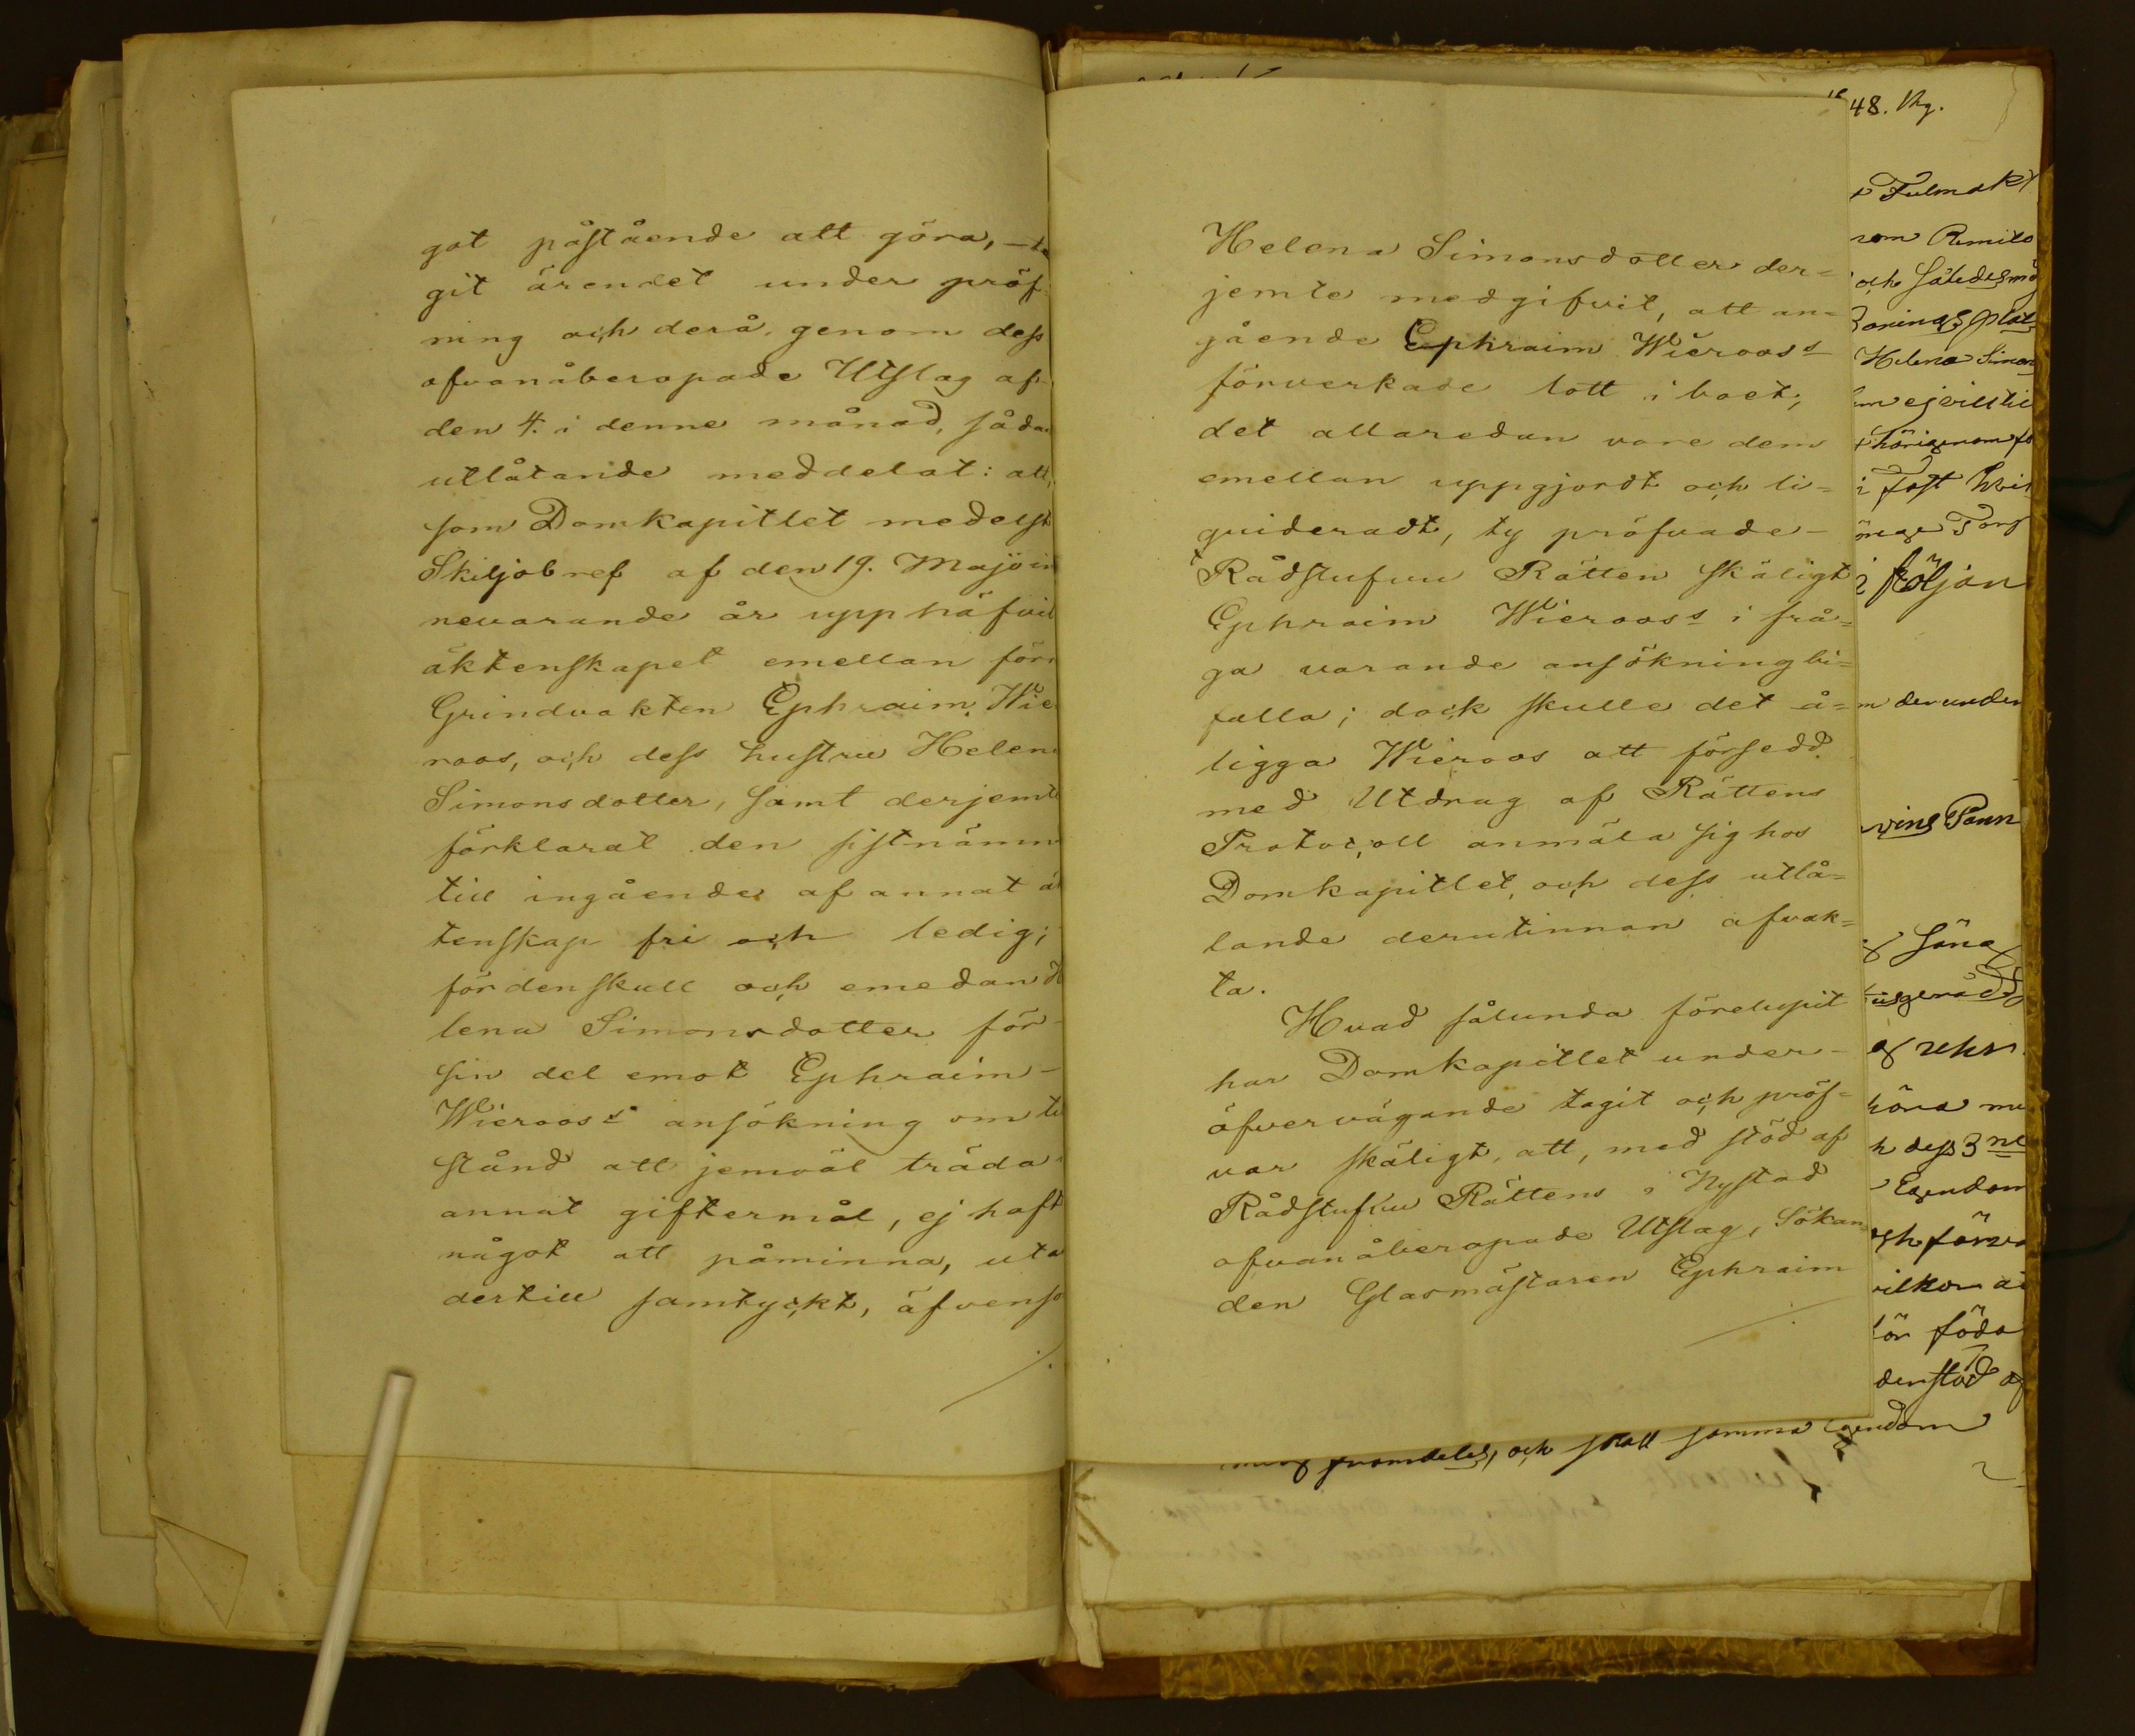 got påstående att göra, ta
git ärendet under pröf
ning och derå genom dess
ofvanåberopade Utslag af
den 4. i denne månad, såda
utlåtande meddelat: att,
som Domkapitlet medelst
Skiljobref af den 19. Maji in
nevarande år upphäfvit
äktenskapet emellan förr
Grindvakten Ephraim Wie
roos, och dess hustru Helena
Simonsdotter, samt derjemte
förklarat den sistnämn
till ingående af annat äk
tenskap fri och ledig;
fördenskull och emedan He
lena Simonsdotter för
sin del emot Ephraim
Wierooss ansökning om til
stånd att jemväl träda i
annat giftermål, ej haft
något att påminna, uta
dertill samtyckt, äfvenso
Helena Simonsdotter der=
jemte medgifvit, att an=
gående Ephraim Wierooss
förverkade lott i boet,
det allaredan vore dem
emellan uppgjordt och li=
quideradt, ty pröfvade
Rådstufvu Rätten skäligt
Ephraim Wierooss i frå=
ga varande ansökning bi=
falla; dock skulle det å=
ligga Wieroos att försedd
med Utdrag af Rättens
Protocoll anmäla sig hos
Domkapitlet, och dess utlå=
tande derutinnan afvak=
ta.
Hvad sålunda förelupit
har Domkapitlet under
öfvervägande tagit och pröf=
var skäligt, att, med stöd af
Rådstufvu Rättens i Nystad
ofvanåberopade Utslag, Sökan
den Glasmästaren Ephraim
48.
Fulmakt
som Rimito
och således
Helena Simon
i Föst
i följan
m derunder
höra
h dess 3ne
Egendom
och förva
ör föda
framdeles, och skall samma Egendom